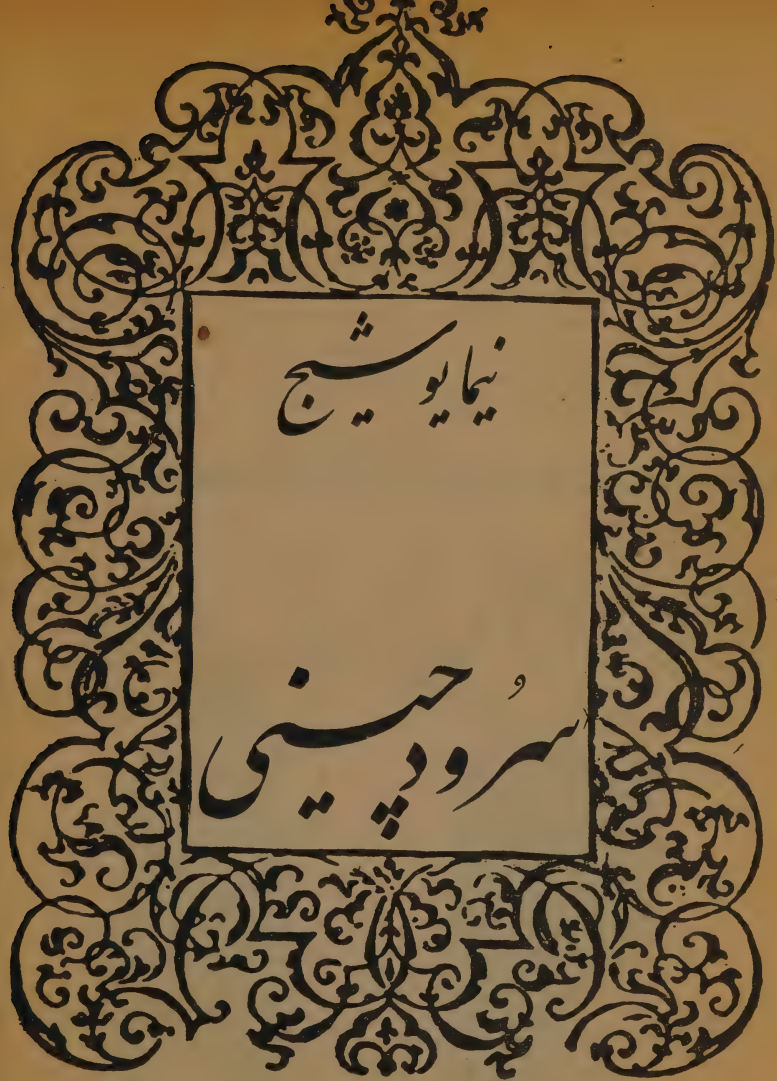 نیما یوشیج
سُرود چینی